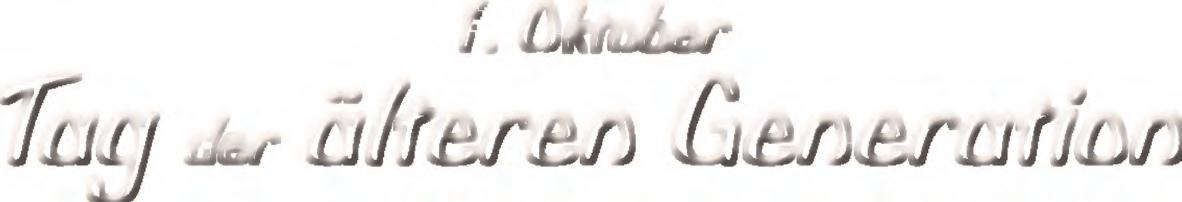 1. Oktober
Tag der älteren Generation